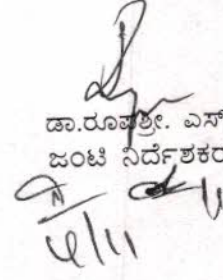 ಡಾ.ರೂಪಶ್ರೀ. ಎಸ್
ಜಂಟಿ ನಿರ್ದೇಶಕರ
4/11